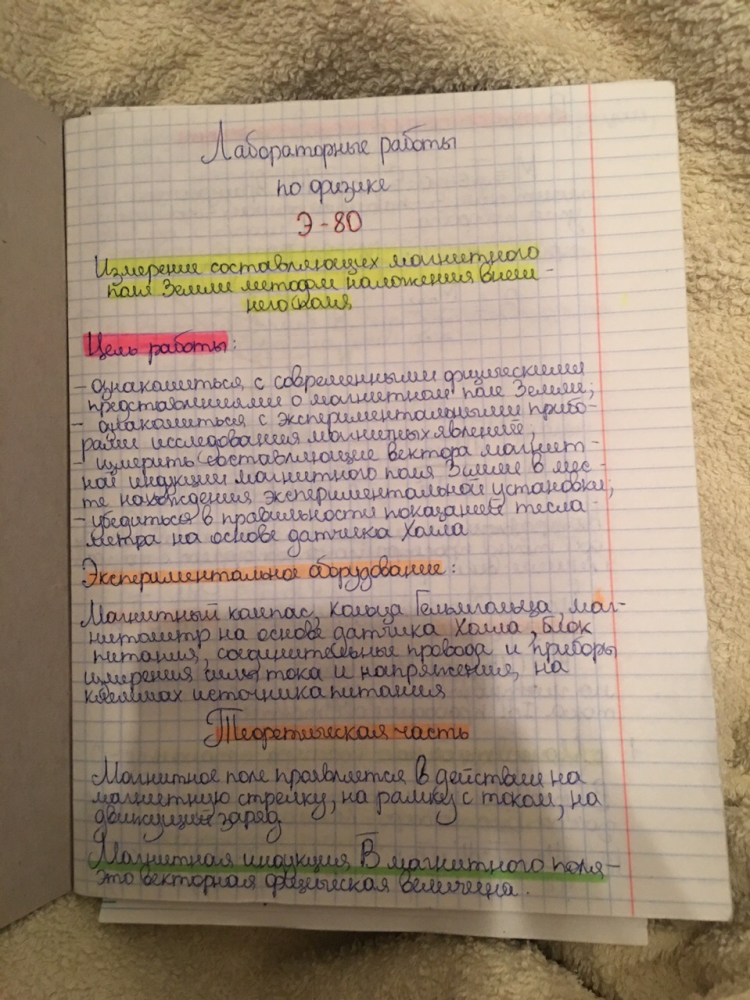 Лабораторные работы
по физике
Э-80
Измерение составляющих магнитного
поля Земли методом наложения внеш-
него поля
Цель работы:
- ознакомиться с современными физическими
представлениями о магнитном поле Земли;
- ознакомиться с экспериментальными прибо-
рами исследования магнитных явлений,
- измерить составляющие вектора магнит-
ной индукции магнитного поля Земли в мес-
те нахождения экспериментальной установки;
- убедиться в правильности показаний тесла-
метра на основе датчика Холла
Экспериментальное оборудование:
Магнитный компас, кольца Гельмгольца, маг-
нитометр на основе датчика Холла, блок
питания, соединительные провода и приборы
измерения силы тока и напряжения, на
клеммах источника питания
Теоретическая часть
Магнитное поле проявляется в действии на
магнитную стрелку, на рамку с током, на
движущийся заряд
Магнитная индукция B̅ магнитного поля -
это векторная физическая величина.